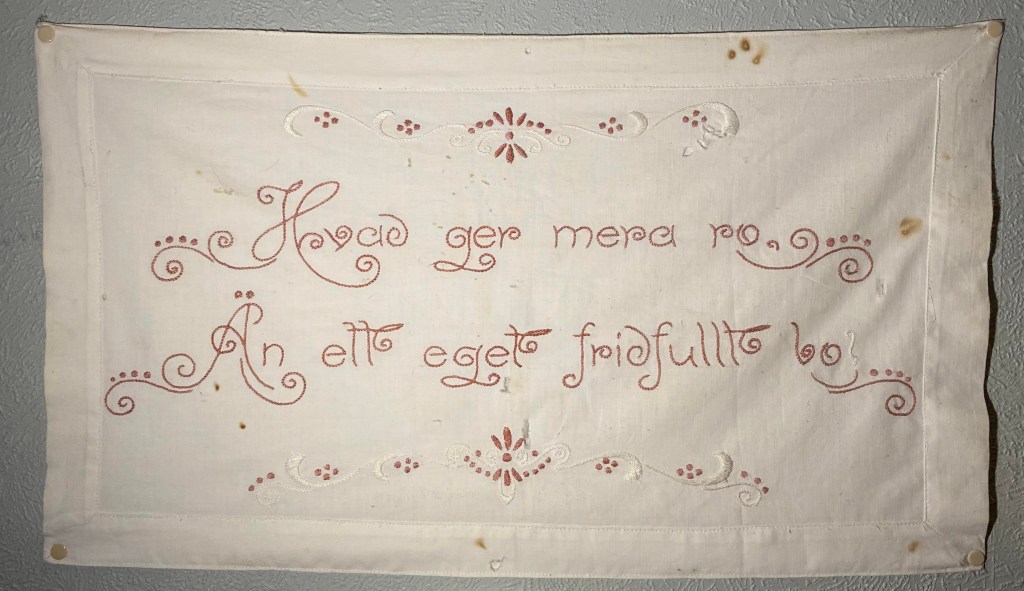 Hvad ger mera ro,
Än ett eget fridfullt bo?